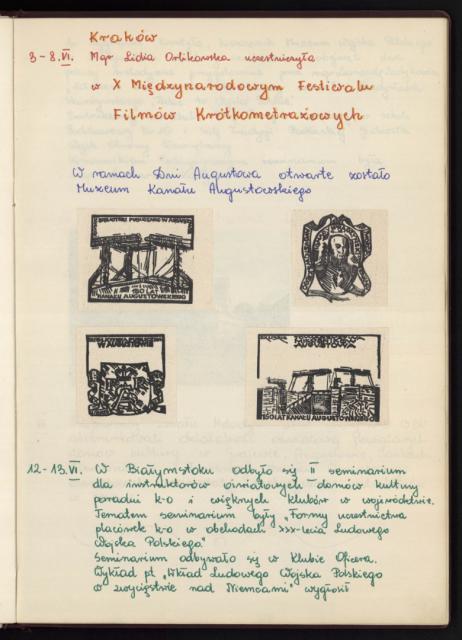 Kraków
3-8.VI. Mgr Lidia Orlikowska uczestniczyła
w X Międzynarodowym Festiwalu
Filmów Krótkometrażowych
W ramach Dni Augustowa otwarte zostało
Muzeum Kanału Augustowskiego
150 LAT
KANAŁU AUGUSTOWSKIEGO
150 LAT KANAŁU AUGUSTOWSKIEGO
12-13.VI. W Białymstoku odbyło się II seminarium
dla instruktorów oświatowych domów kultury
poradni k-o i większych klubów w województwie.
Tematem seminarium były „Formy uczestnictwa
placówek k-o w obchodach XXX-lecia Ludowego
Wojska Polskiego"
Seminarium odbywało się w Klubie Oficera.
Wykład pt „Wkład Ludowego Wojska Polskiego
w zwycięstwie nad Niemcami" wygłosił